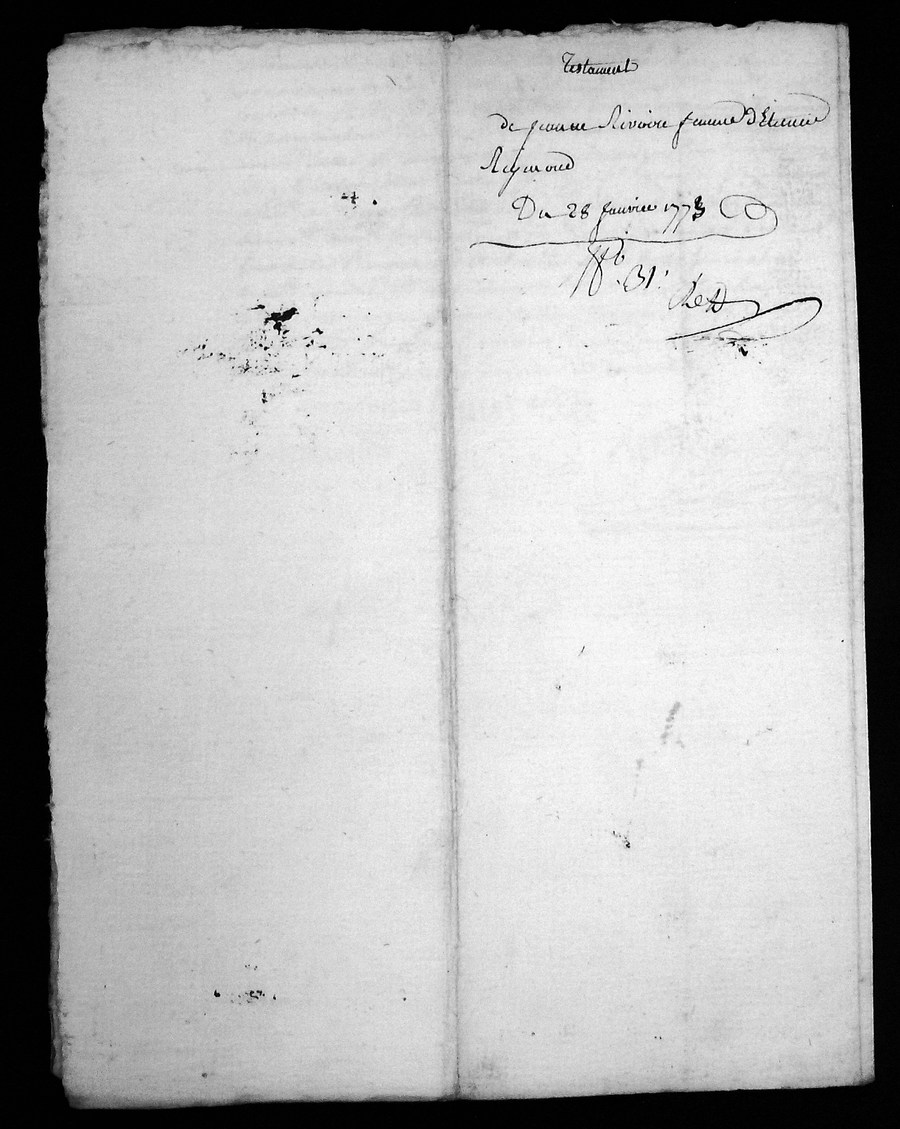 Testament
de jeanne Rivoire femme d'Etienne
Reymond
Du 28 janvier 1773
31